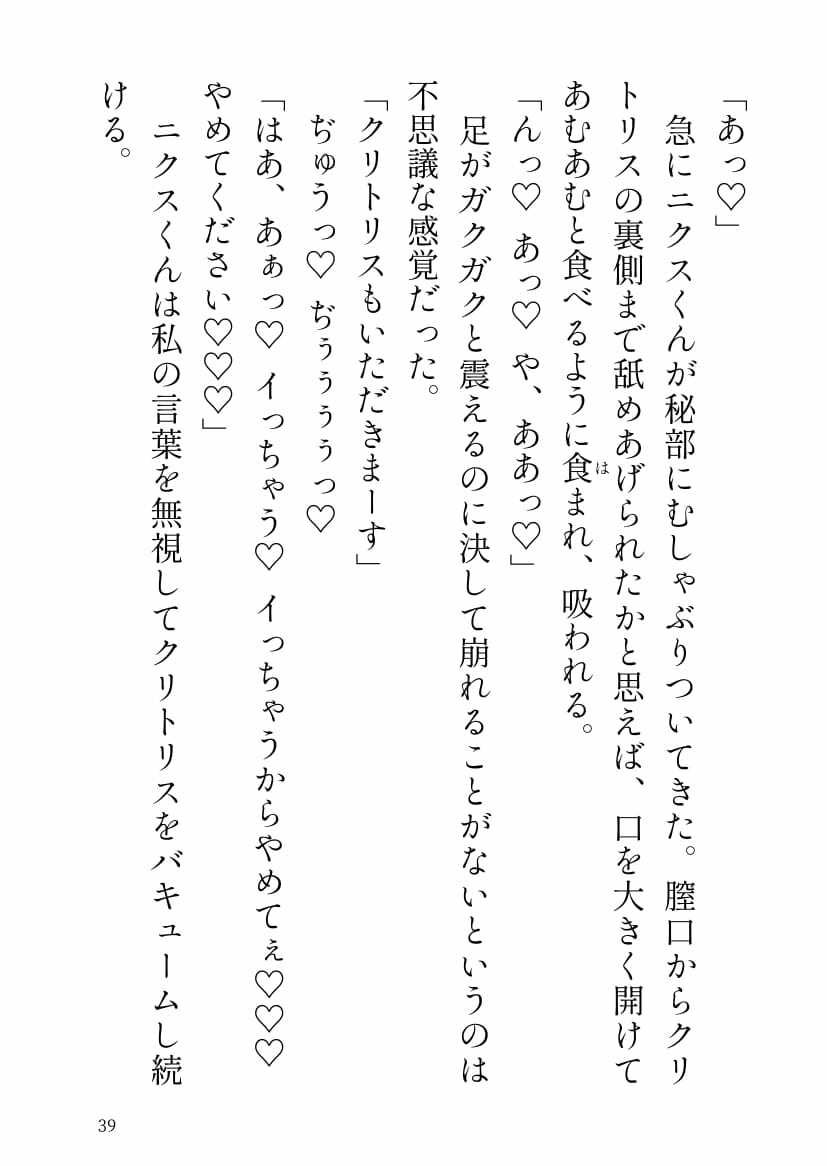 「あっ♡」
急にニクスくんが秘部にむしゃぶりついてきた。膣口からクリ
トリスの裏側まで舐めあげられたかと思えば、口を大きく開けて
あむあむと食べるように食まれ、吸われる。
は
「んっ♡ あっ♡ や、ああっ♡」
足がガクガクと震えるのに決して崩れることがないというのは
不思議な感覚だった。
「クリトリスもいただきまーす」
ぢゅうっ♡ ぢぅぅぅぅっ♡
「はあ、あぁっ♡ イっちゃう♡ イっちゃうからやめてぇ♡♡♡
やめてください♡♡♡」
ニクスくんは私の言葉を無視してクリトリスをバキュームし続
ける。
39